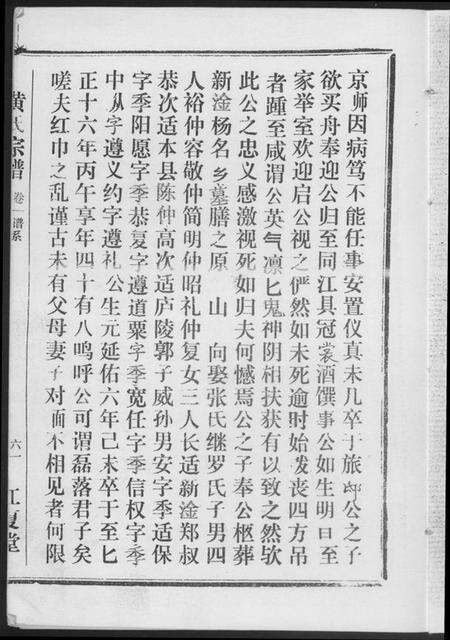 京师因病笃不能任事安置仪真未几卒于旅邸公之子
欲买舟奉迎公归至同江县冠裳酒馔事公如生明日至
家举室欢迎启公视之俨然如未死逾时始发丧四方吊
者踵至咸谓公英气凛匕鬼神阴相扶获有以致之然欤
此公之忠义感激视死如归夫何憾焉公之子奉公柩葬
新淦杨名乡墓膳之原 山 向娶张氏继罗氏子男四
人裕仲容敬仲简明仲昭礼仲复女三人长适新淦郑叔
恭次适本县陈仲高次适庐陵郭子威孙男安字季适保
字季阳愿字季恭复字遵道粟字季宽任字季信权字季
中从字遵义约字遵礼公生元延佑六年己未卒于至匕
正十六年丙午享年四十有八鸣呼公可谓磊落君子矣
嗟夫红巾之乱谨古未有父母妻子对面不相见者何限
黄氏宗谱
卷一谱系
六一
江夏堂